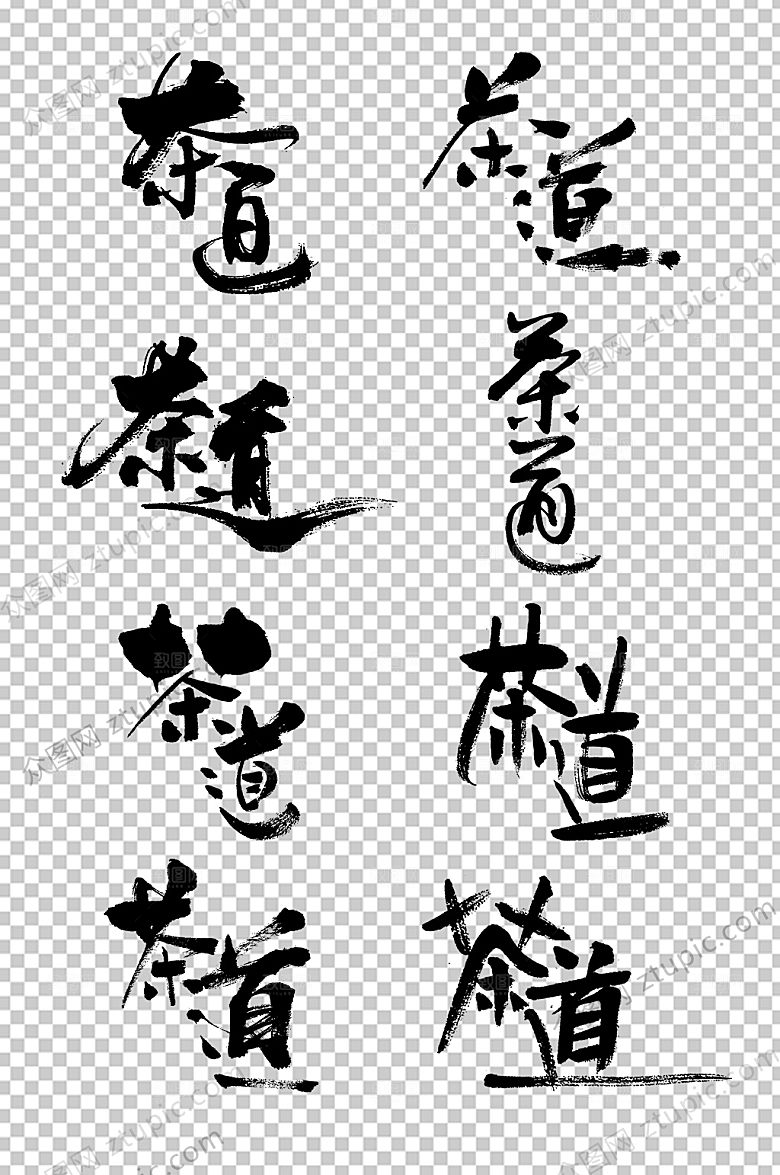 茶道 茶道
茶道 茶道
茶道 茶道
茶道 茶道
众图网 ztupic.com
众图网 ztupic.com
众图网 ztupic.com
众图网 ztupic.com
众图网 ztupic.com